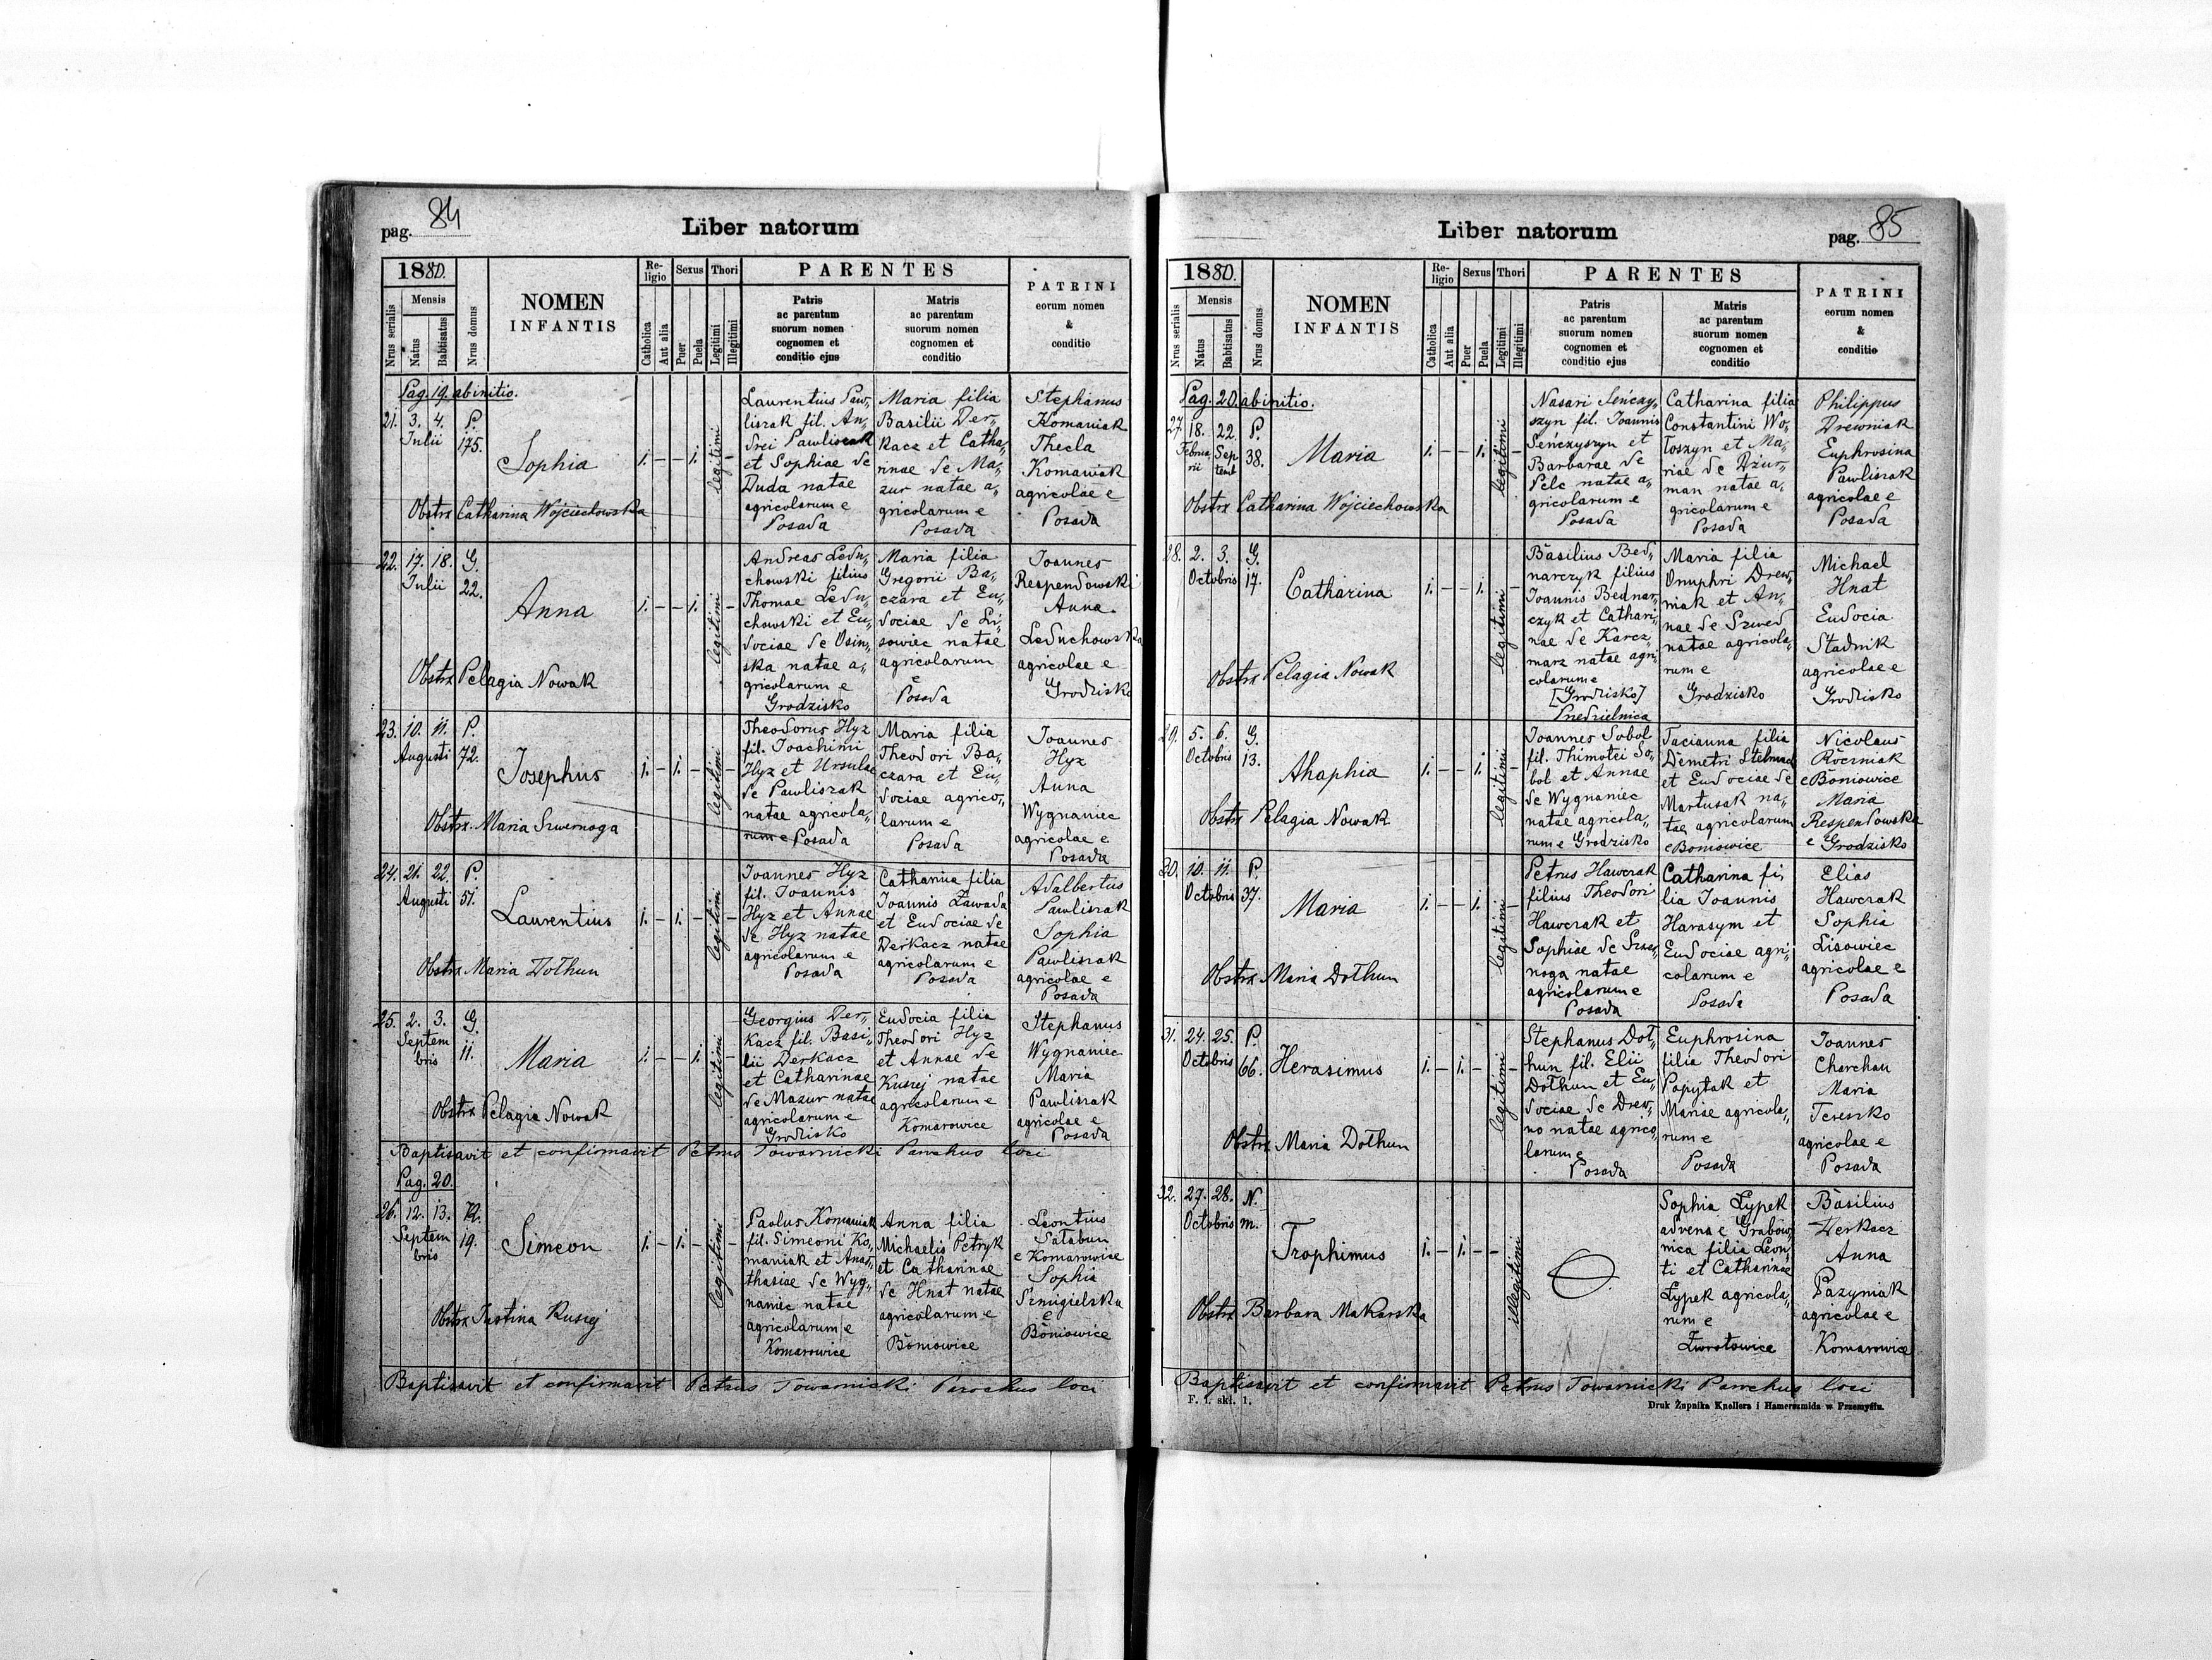 pag. 84
Liber natorum
1880.
Mensis
Nrus serialis
Natus
Babtisatus
Nrus domus
NOMEN
INFANTIS
Re-
ligio
Catholica
Aut alia
Sexus
Puer
Puela
Thori
Legitimi
Illegitimi
PARENTES
Patris
ac parentum
suorum nomen
cognomen et
conditio ejus
Matris
ac parentum
suorum nomen
cognomen et
conditio
PATRINI
eorum nomen
&
conditio
Pag. 19. ab initio.
21. 3. 4. P.
Julii 175.
Sophia
1. – – 1. legitimi –
Obstrx Catharina Wojciechowska
Laurentius Paw„
liszak fil. An„
drei Pawliszak
et Sophiae de
Duda natae
agricolarum e
Posada
Maria filia
Basilii Der„
kacz et Catha„
rinae de Ma„
zur natae a„
gricolarum e
Posada
Stephanus
Komaniak
Thecla
Komaniak
agricolae e
Posada
22. 17. 18. G.
Julii 22.
Anna
1. – – 1. legitimi –
Obstrx Pelagia Nowak
Andreas Ledu„
chowski filius
Thomae Ledu„
chowski et Eu„
dociae de Osin„
ska natae a„
gricolarum e
Grodzisko
Maria filia
Gregorii Ba„
czara et Eu„
dociae de Li„
sowiec natae
agricolarum
e
Posada
Joannes
Respendowski
Anna
Leduchowska
agricolae e
Grodzisko
23. 10. 11. P.
Augusti 72.
Josephus
1. – 1. – legitimi –
Obstrx. Maria Szwernoga
Theodorus Hyz
fil. Joachimi
Hyz et Ursulae
de Pawliszak
natae agricola„
rum e Posada
Maria filia
Theodori Ba„
czara et Eu„
dociae agrico„
larum e
Posada
Joannes
Hyz
Anna
Wygnaniec
agricolae e
Posada
24. 21. 22. P.
Augusti 51.
Laurentius
1. – 1. – legitimi –
Obstrx Maria Dothun
Joannes Hyz
fil. Joannis
Hyz et Annae
de Hyz natae
agricolarum e
Posada
Catharina filia
Joannis Zawada
et Eudociae de
Derkacz natae
agricolarum e
Posada
Adalbertus
Pawliszak
Sophia
Pawliszak
agricolae e
Posada
25. 2. 3. G.
Septem
bris 11.
Maria
1. – – 1. legitimi –
Obstrx Pelagia Nowak
Georgius Der„
kacz fil. Basi„
lii Derkacz
et Catharinae
de Mazur natae
agricolarum e
Grodzisko
Eudocia filia
Theodori Hyz
et Annae de
Kusiej natae
agricolarum e
Komarowice
Stephanus
Wygnaniec
Maria
Pawliszak
agricolae e
Posada
Baptisavit et confirmavit Petrus Towarnicki Parochus loci
Pag. 20.
26. 12. 13. K.
Septem
bris 19.
Simeon
1. – 1. – legitimi –
Obstrx Justina Kusiej
Paulus Komaniak
fil. Simeoni Ko„
maniak et Anas„
thasiae de Wyg„
naniec natae
agricolarum e
Komarowice
Anna filia
Michaelis Petryk
et Catharinae
de Hnat natae
agricolarum e
Boniowice
Leontius
Satabun
e Komarowice
Sophia
Szmigielska
e
Boniowice
Baptisavit et confirmavit Petrus Towarnicki Parochus loci
Liber natorum
pag. 85
1880.
Mensis
Nrus serialis
Natus
Babtisatus
Nrus domus
NOMEN
INFANTIS
Re-
ligio
Catholica
Aut alia
Sexus
Puer
Puela
Thori
Legitimi
Illegitimi
PARENTES
Patris
ac parentum
suorum nomen
cognomen et
conditio ejus
Matris
ac parentum
suorum nomen
cognomen et
conditio
PATRINI
eorum nomen
&
conditio
Pag. 20. ab initio.
27. 18. 22. P.
Februa
rii Sep
temb 38.
Maria
1. – – 1. legitimi –
Obstrx Catharina Wojciechowska
Nasari Senczy„
szyn fil. Joannis
Senczyszyn et
Barbarae de
Pelc natae a„
gricolarum e
Posada
Catharina filia
Constantini Wo„
łoszyn et Ma„
riae de Dżur„
man natae a„
gricolarum e
Posada
Philippus
Drewniak
Euphrosina
Pawliszak
agricolae e
Posada
28. 2. 3. G.
Octobris 17.
Catharina
1. – – 1. legitimi –
Obstrx Pelagia Nowak
Basilius Bed„
narczyk filius
Joannis Bednar„
czyk et Cathari„
nae de Karcz„
marz natae agri„
colarum e
[Grodzisko]
Predzielnica
Maria filia
Onuphri Drew„
niak et An„
nae de Szwed
natae agricola„
rum e
Grodzisko
Michael
Hnat
Eudocia
Stadnik
agricolae e
Grodzisko
29. 5. 6. G.
Octobris 13.
Ahaphia
1. – – 1. legitimi –
Obstrx Pelagia Nowak
Joannes Sobol
fil. Thimotei So„
bol et Annae
de Wygnaniec
natae agricola„
rum e Grodzisko
Tacianna filia
Demetri Stelmach
et Eudociae de
Martusak na„
tae agricolarum
e Boniowice
Nicolaus
e Boniowice
Maria
Respendowska
e Grodzisko
30. 10. 11. P.
Octobris 37.
Maria
1. – – 1. legitimi –
Obstrx Maria Dothun
Petrus Hawczak
filius Theodori
Hawczak et
Sophiae de Szwer„
noga natae
agricolarum e
Posada
Catharina fi„
lia Joannis
Harasym et
Eudociae agri„
colarum e
Posada
Elias
Hawczak
Sophia
Lisowiec
agricolae e
Posada
31. 24. 25. P.
Octobris 66.
Herasimus
1. – 1. – legitimi –
Obstrx Maria Dothun
Stephanus Dot„
hun fil. Elii
Dothun et Eu„
dociae de Drew„
no natae agrico„
larum e
Posada
Euphrosina
filia Theodori
Popytak et
Mariae agricola„
rum e
Posada
Joannes
Charchan
Maria
Tereszko
agricolae e
Posada
32. 27. 28. N.
Octobris m.
Trophimus
1. – 1. – – illegitimi
Obstrx Barbara Makarska
Sophia Łypek
advena e Grabow„
nica filia Leon„
ti et Catharinae
Łypek agricola„
rum e
Zwrotowice
Basilius
Derkacz
Anna
Pazyniak
agricolae e
Komarowice
Baptisavit et confirmavit Petrus Towarnicki Parochus loci
F. I. skł. 1.
Druk Żupnika Knollera i Hamerszmida w Przemyślu.